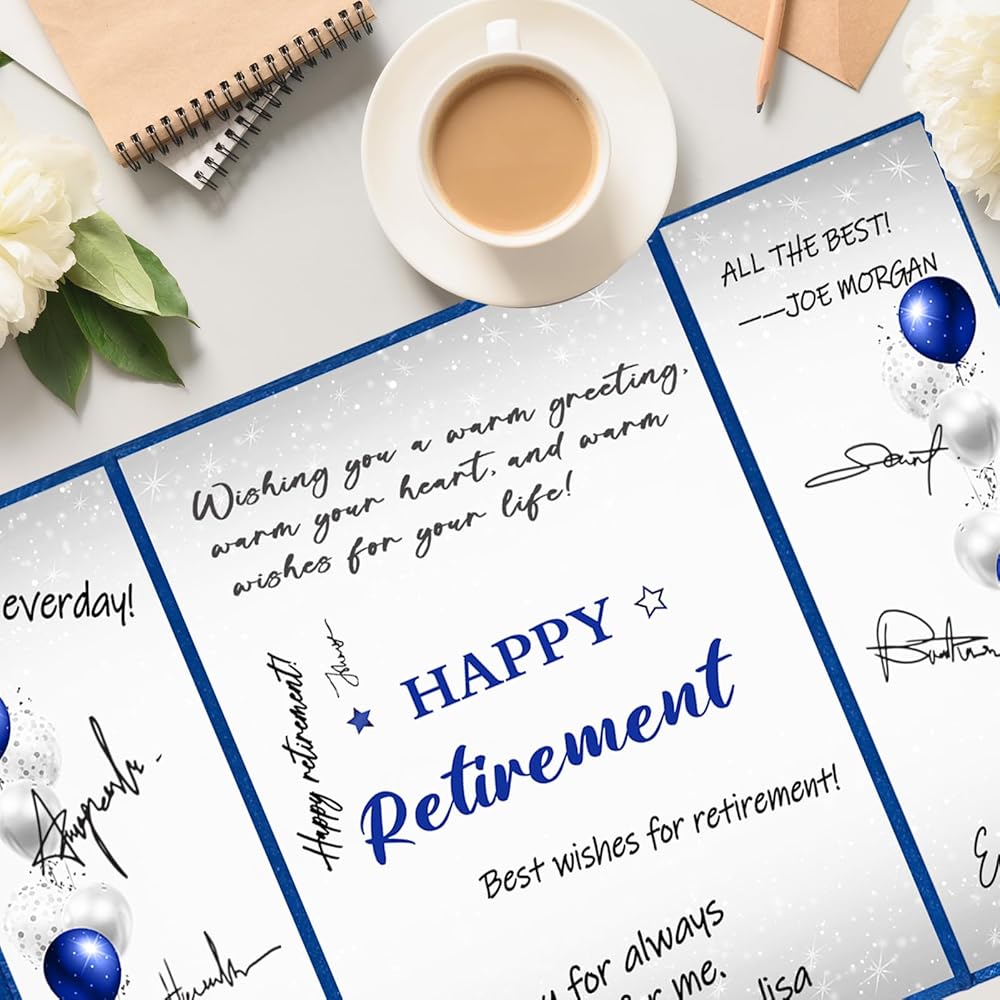 everday!
Wishing you a warm greeting,
warm your heart, and warm
wishes for your life!
Happy retirement!
HAPPY
Retirement
Best wishes for retirement!
for always
me.
lisa
ALL THE BEST!
——JOE MORGAN